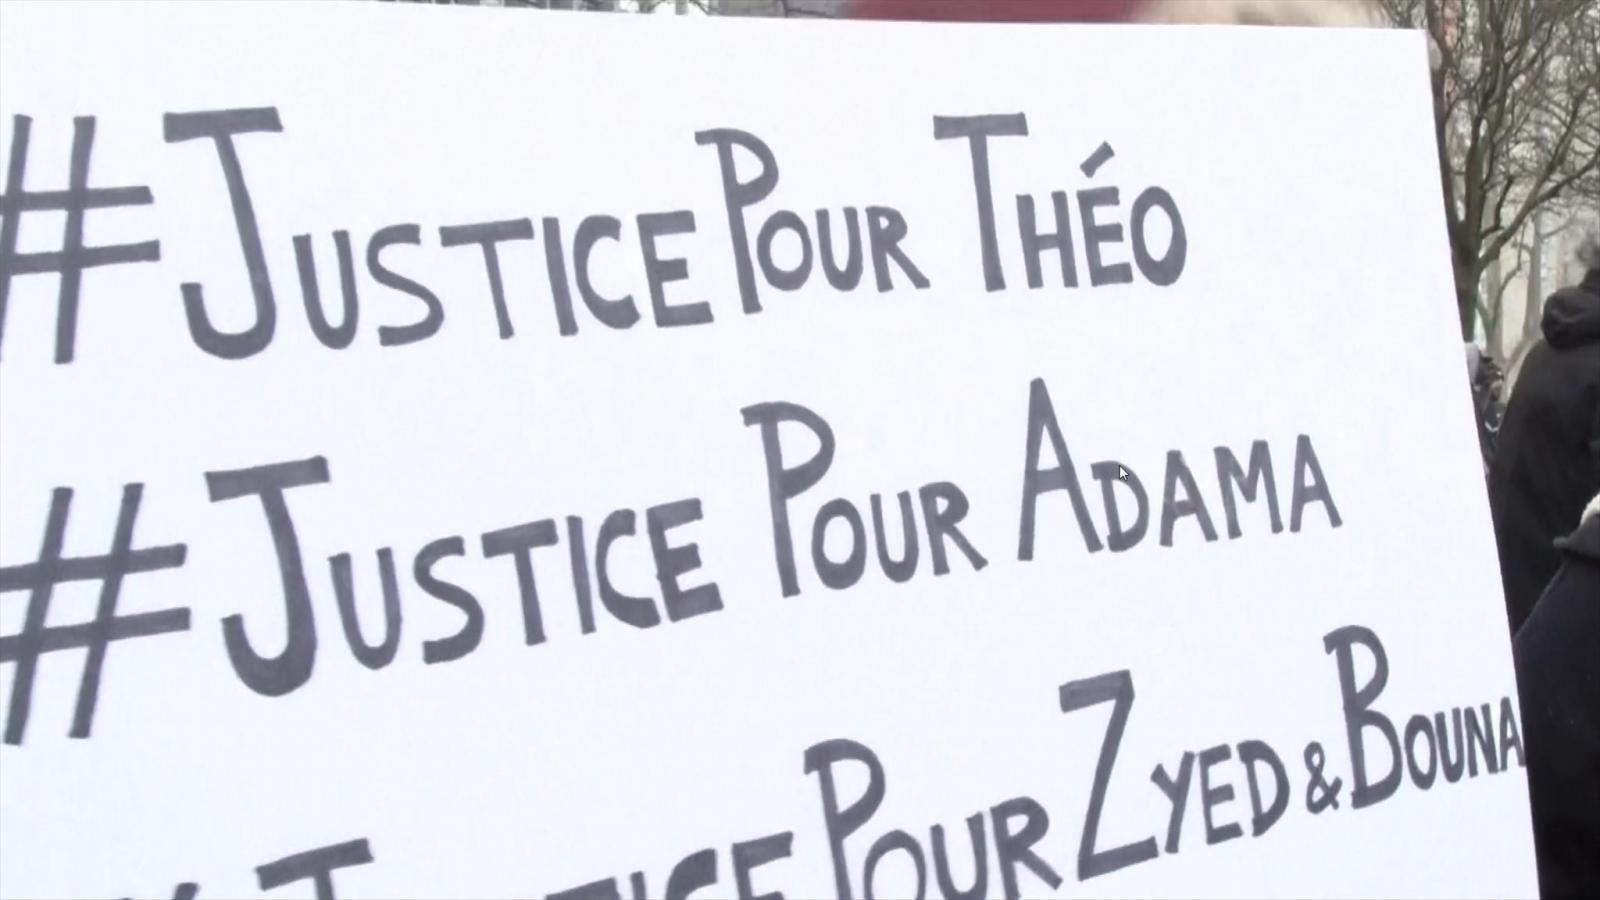 #JUSTICE POUR THÉO
#JUSTICE POUR ADAMA
#JUSTICE POUR ZYED & BOUNA